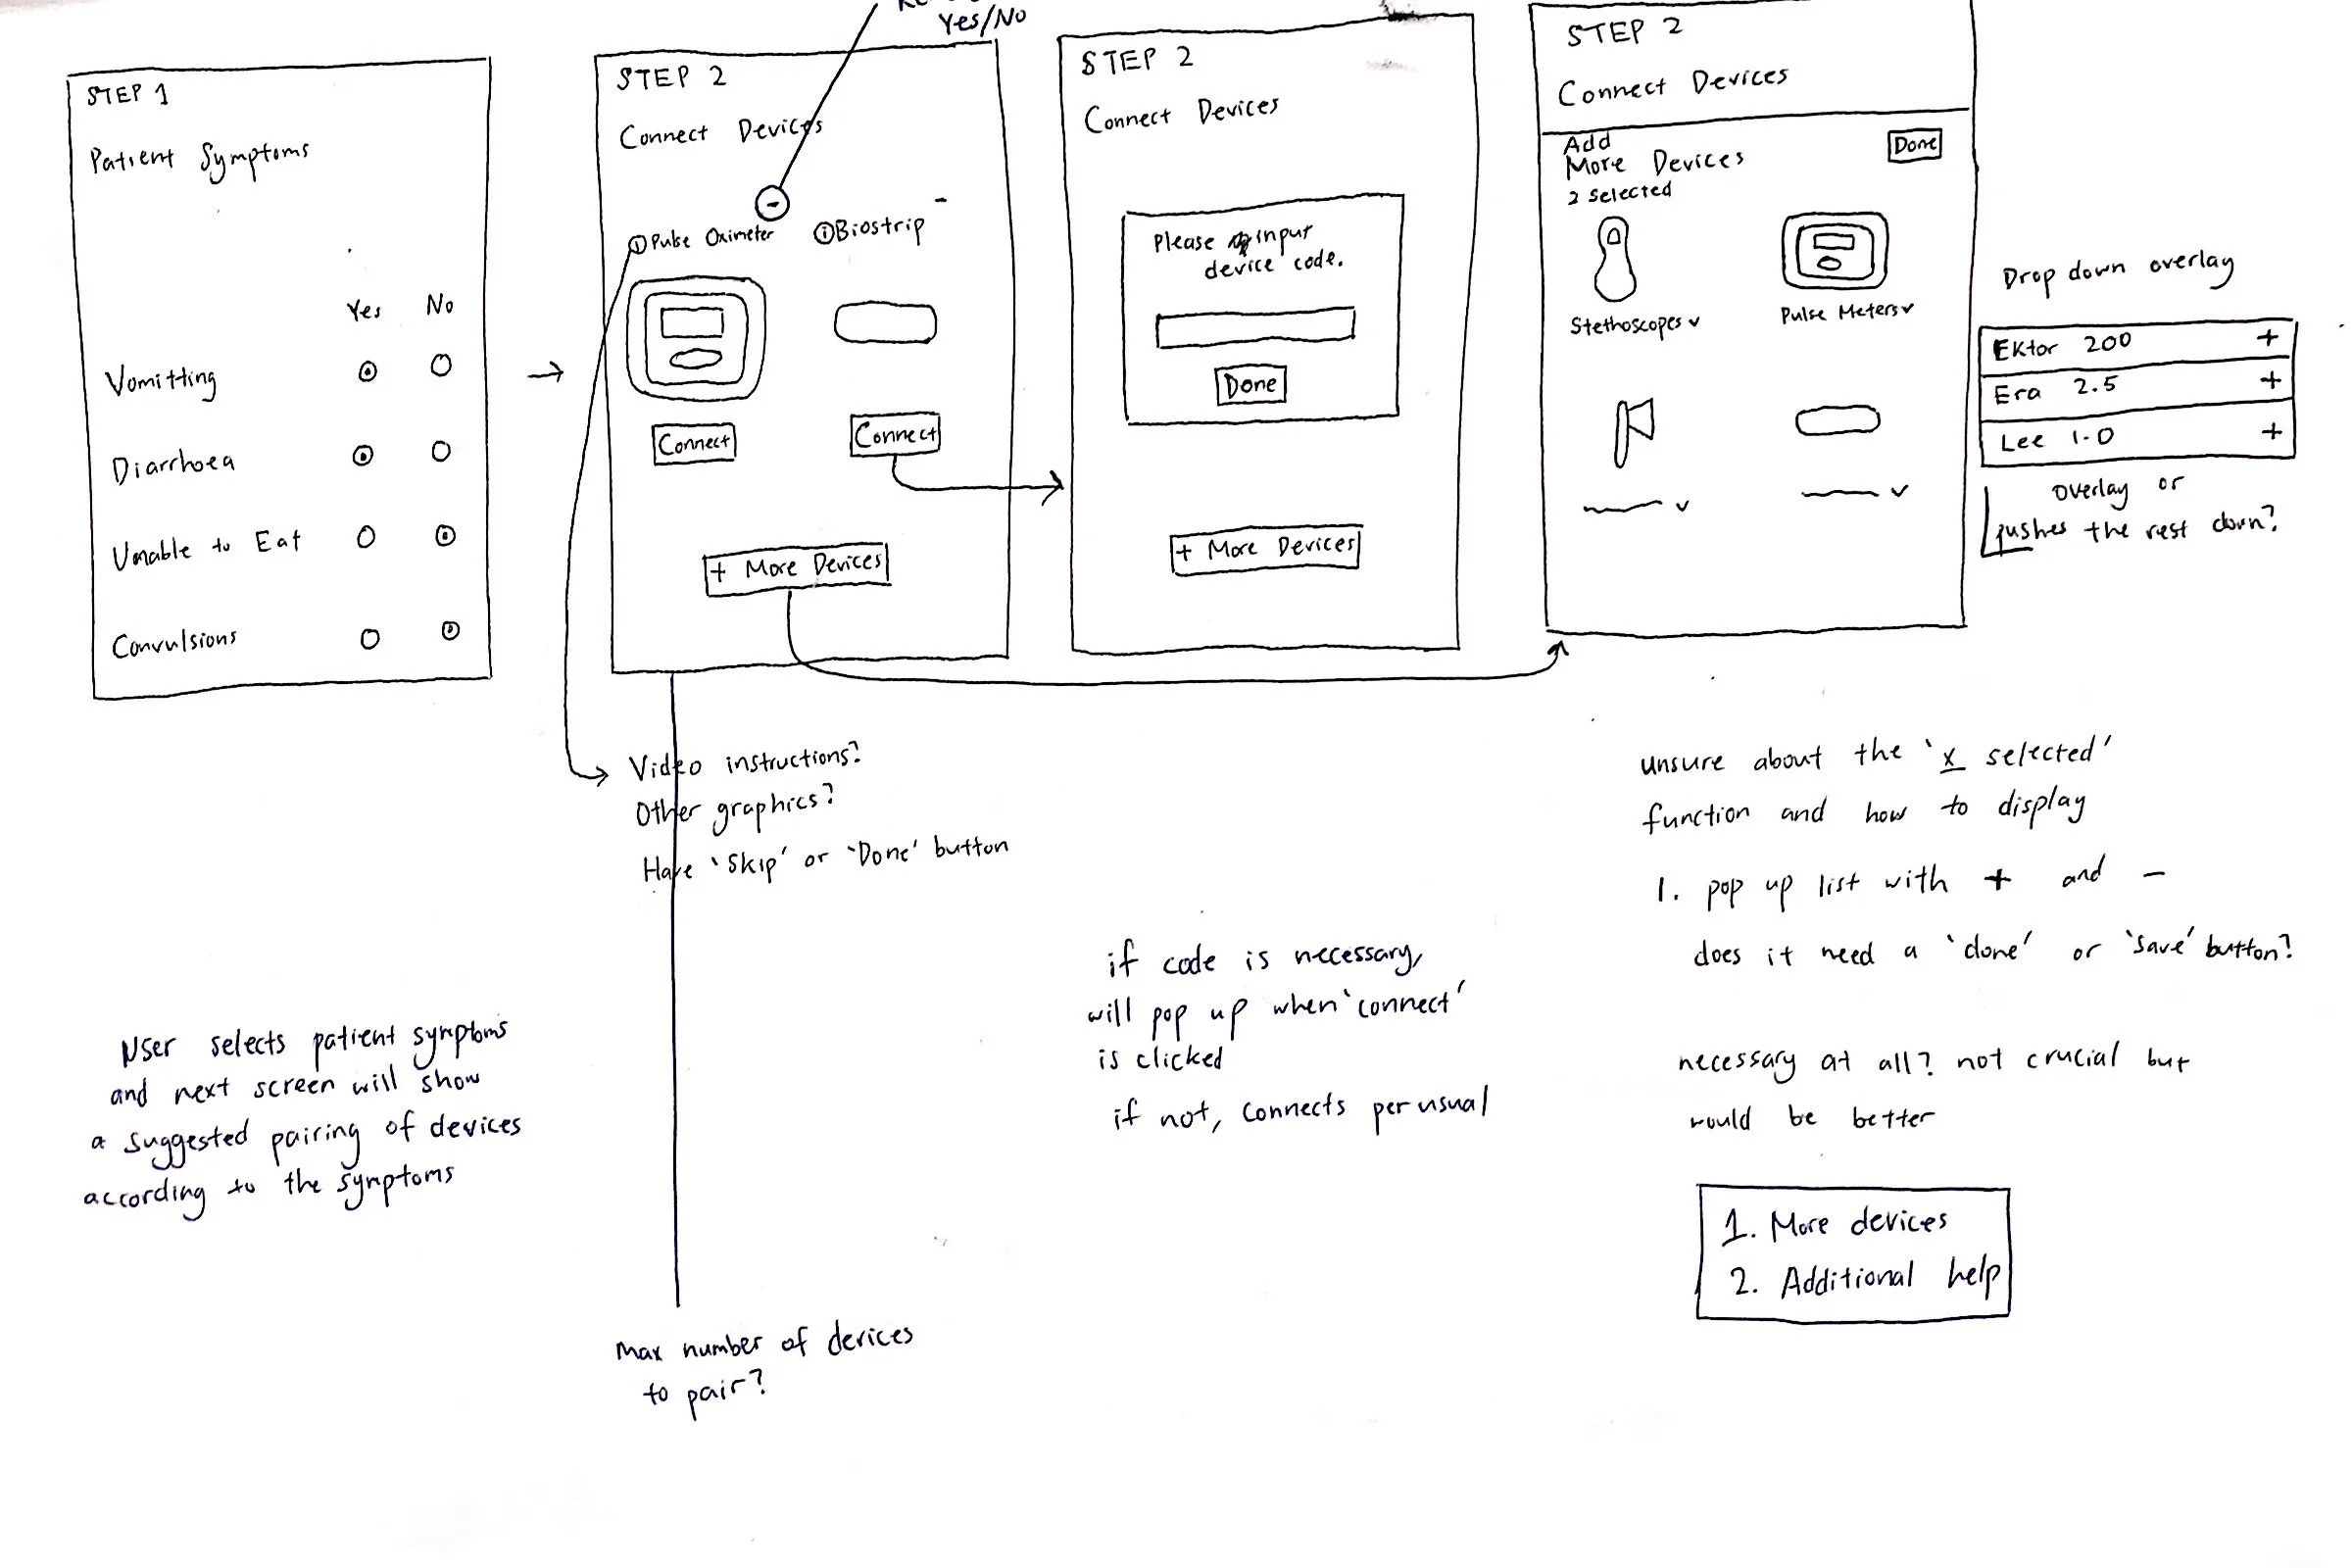 Yes/No
STEP 1
Patient Symptoms
Yes No
Vomitting
Diarrhoea
Unable to Eat
Convulsions
User selects patient symptoms
and next screen will show
a suggested pairing of devices
according to the symptoms
STEP 2
Connect Devices
-
i Pulse Oximeter
i Biostrip -
Connect
Connect
+ More Devices
Video instructions?
Other graphics?
Have 'Skip' or 'Done' button
Max number of devices
to pair?
STEP 2
Connect Devices
Please input
device code.
Done
+ More Devices
if code is necessary,
will pop up when 'connect'
is clicked
if not, connects per usual
STEP 2
Connect Devices
Add
More Devices
Done
2 selected
Stethoscopes v
Pulse Meters v
v
v
Drop down overlay
Ektor 200 +
Era 2.5 +
Lee 1.0 +
overlay or
pushes the rest down?
unsure about the 'x selected'
function and how to display
1. pop up list with + and -
does it need a 'done' or 'save' button?
necessary at all? not crucial but
would be better
1. More devices
2. Additional help